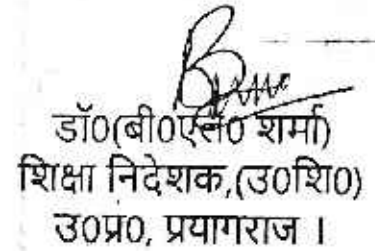 डॉ0(बी0एल0 शर्मा)
शिक्षा निदेशक,(उ0शि0)
उ0प्र0, प्रयागराज ।